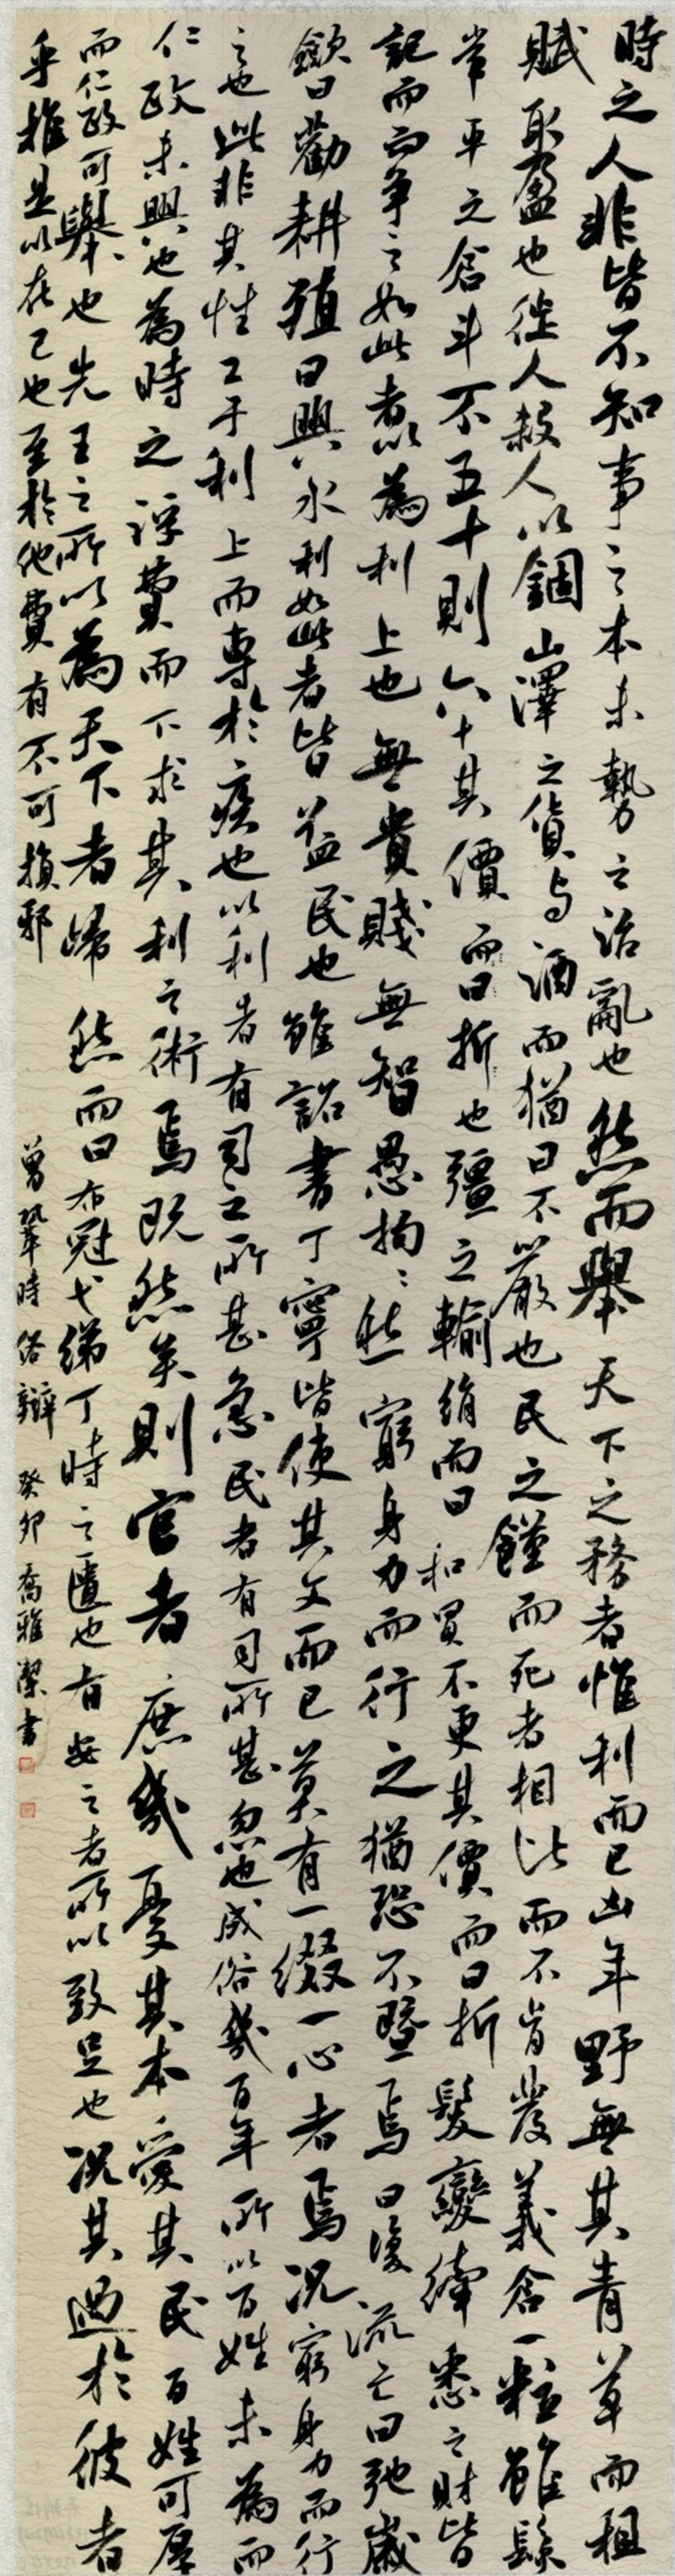 時之人非皆不知事之本末勢之治亂也然而舉天下之務者惟利而已凶年野無其青草而租
賦取盈也從人殺人以錮山澤之貨与酒而猶曰不嚴也民之饉而死者相比而不肯發義倉一粒雖縣
常平之倉斗不五十則六十其價而曰折也彊之輸絹而曰和買不更其價而曰折髮變繂悉之財皆
記而而爭之如此煮為利上也無貴賤無智愚拘拘然窮身力而行之猶恐不暨焉曰復流亡曰弛歲
斂曰勸耕殖曰興水利如此者皆益民也雖詔書丁寧皆使其文而已莫有一綴一心者焉況窮身力而行
之也此非其性工于利上而專於疾也以利者有司之所甚急民者有司所甚忽也成俗幾百年所以百姓未為而
仁政未興也為時之浮費而下求其利之術焉既然矣則官者庶幾憂其本愛其民百姓可厚
而仁政可舉也先王之所以為天下者歸然而曰布冠弋綈丁時之匱也有安之者所以致足也況其過於彼者
乎推是以在己也至於他費有不可損邪 曾鞏時俗辯 癸卯喬雅潔書